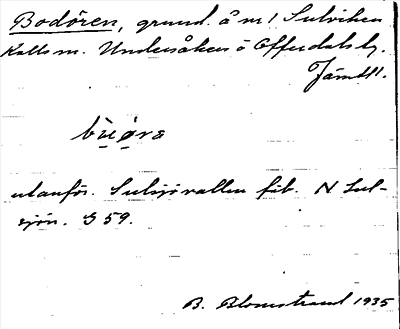 Bodören, grund å m1 Sulviken
Kalls sn. Undersåkers o Offerdals tg.
Jämtl.
bùørɛ
utanför Sulsjövallen fäb. N Sul-
sjön. S 59.
B. Blomstrand 1935